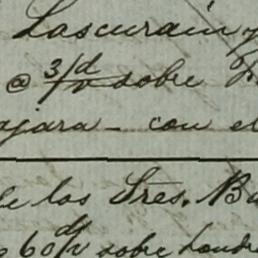 Lascurain y
@ 3/d/v sobre
ajara - con el
de los Sres. Ba
60 d/v sobre Londre